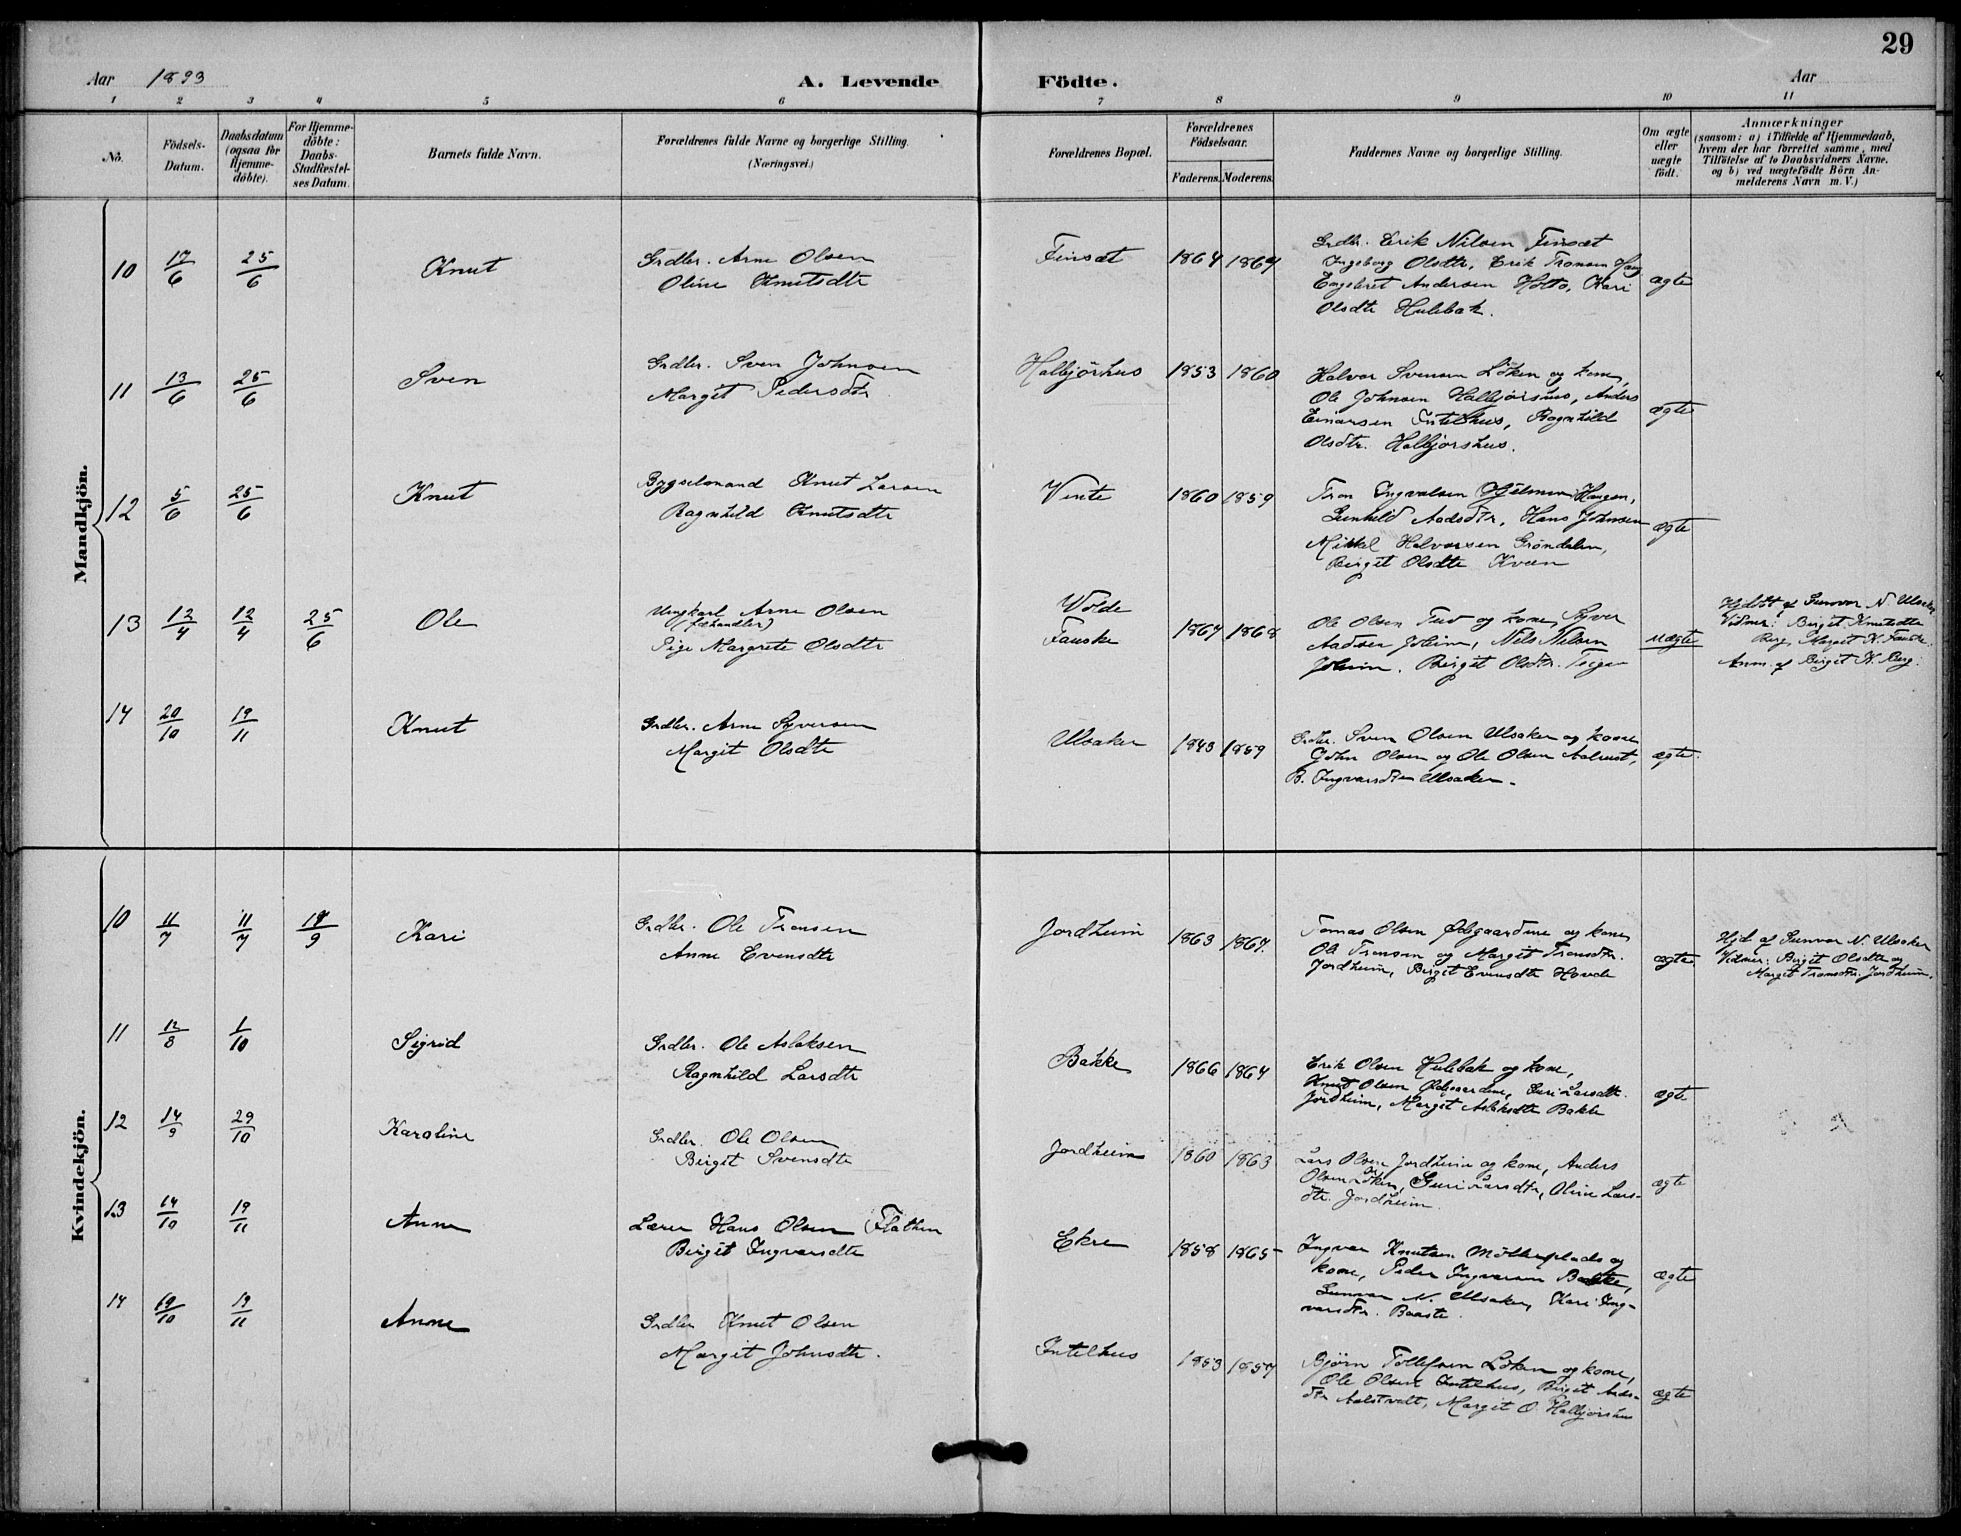 29
Aar 1893
A. Levende Födte.
Aar
1 2 3 4 5 6 7 8 9 10 11
No.
Födsels-Datum.
Daabsdatum (ogsaa för Hjemme-döbte).
For Hjemme-döbte: Daabs-Stadfæstel-ses Datum.
Barnets fulde Navn.
Forældrenes fulde Navne og borgerlige Stilling.
(Næringsvei.)
Forældrenes Bopæl.
Forældrenes Födselsaar.
Faderens. Moderens.
Faddernes Navne og borgerlige Stilling.
Om ægte eller uægte födt.
Anmærkninger
(saasom: a) i Tilfælde af Hjemmedaab,
hvem der har forrettet samme, med
Tilföielse af to Daabsvidners Navne,
og b) ved uægtefödte Börn An-
melderens Navn m. V.)
Mandkjön.
10 17/6 25/6 Knut
Grdbr. Arne Olsen
Oline Knutsdtr
Finset 1864 1869
Grdbr. Erik Nilsen Finset
Ingeborg Olsdtr, Erik Tronsen Haug
Engebret Andersen Holto, Kari
Olsdtr Hulebak.
ægte
11 13/6 25/6 Sven
Grdbr. Sven Johnsen
Margit Pedersdtr
Halbjörhus 1853 1860
Halvor Svensen Löken og kone,
Ole Johnsen Halbjörshus, Anders
Einarsen Intelhus, Ragnhild
Olsdtr. Halbjörshus.
ægte
12 5/6 25/6 Knut
Bygselmand Knut Larsen
Ragnhild Knutsdtr
Vinte 1860 1859
Tron Ingvalsen Hjelmen Haugen,
Gunhild Aadsdtr, Hans Johnsen
Mikkel Halvorsen Gröndalen,
Birgit Olsdtr Kveen
ægte
13 12/4 12/4 25/6 Ole
Ungkarl Arne Olsen
(fæhandler)
Pige Margrete Olsdtr
Wolde
Fauske 1864 1868
Ole Olsen Tuv og kone, Syver
Aadsen Joleim, Nils Nilsen
Joleim. Birgit Olsdtr.
uægte
Hjdöbt af Gunvor N. Ulsaker
Vidner: Birgit Knutsdtr
Berg, Margit K. Fauske.
Anm. af Birgit K. Berg.
14 20/10 19/11 Knut
Grdbr. Arne Syversen
Margit Olsdtr
Ulsaker 1843 1859
Grdbr. Sven Olsen Ulsaker og kone
John Olsen og Ole Olsen Aalrust,
B. Ingvarsdtr Ulsaker.
ægte.
Kvindekjön.
10 11/7 11/7 18/9 Kari
Grdbr. Ole Tronsen
Anne Evensdtr
Jordheim 1863 1867.
Tomas Olsen Ødegaardene og kone
Ole Tronsen og Margit Tronsdtr.
Jordheim, Birgit Evensdtr Hovde
ægte
Hjd af Gunvor N. Ulsaker
Vidner: Birgit Olsdtr og
Margit Tronsdtr. Jordheim.
11 12/8 1/10 Sigrid
Grdbr. Ole Aslaksen
Ragnhild Larsdtr
Bakke 1866 1864
Erik Olsen Hulebak og kone,
Knud Olsen Ødegaardene, Guri Larsdtr.
Jordheim, Margit Aslaksdtr Bakke
ægte
12 14/9 29/10 Karoline
Grdbr. Ole Olsen
Birgit Svensdtr
Jordheim 1860 1863
Lars Olsen Jordheim og kone, Anders
Olsen Löken, Guri Larsdtr, Oline Lars-
dtr. Jordheim.
ægte
13 14/10 19/11 Anne
Lærer Hans Olsen Flaten
Birgit Ingvarsdtr
Ekre 1858 1865
Ingvar Knutsen Mölleplads og
kone, Peder Ingvarsen Baste,
Gunvor N. Ulsaker, Kari Ing-
varsdtr. Baaste.
ægte
14 19/10 19/11 Anne
Grdbr Knut Olsen
Margit Johnsdtr.
Intelhus 1853 1857
Björn Tollefsen Löken og kone,
Ole Olsen Intelhus, Birgit Aads-
dtr Aalstvelt, Margit O. Halbjörshus
ægte